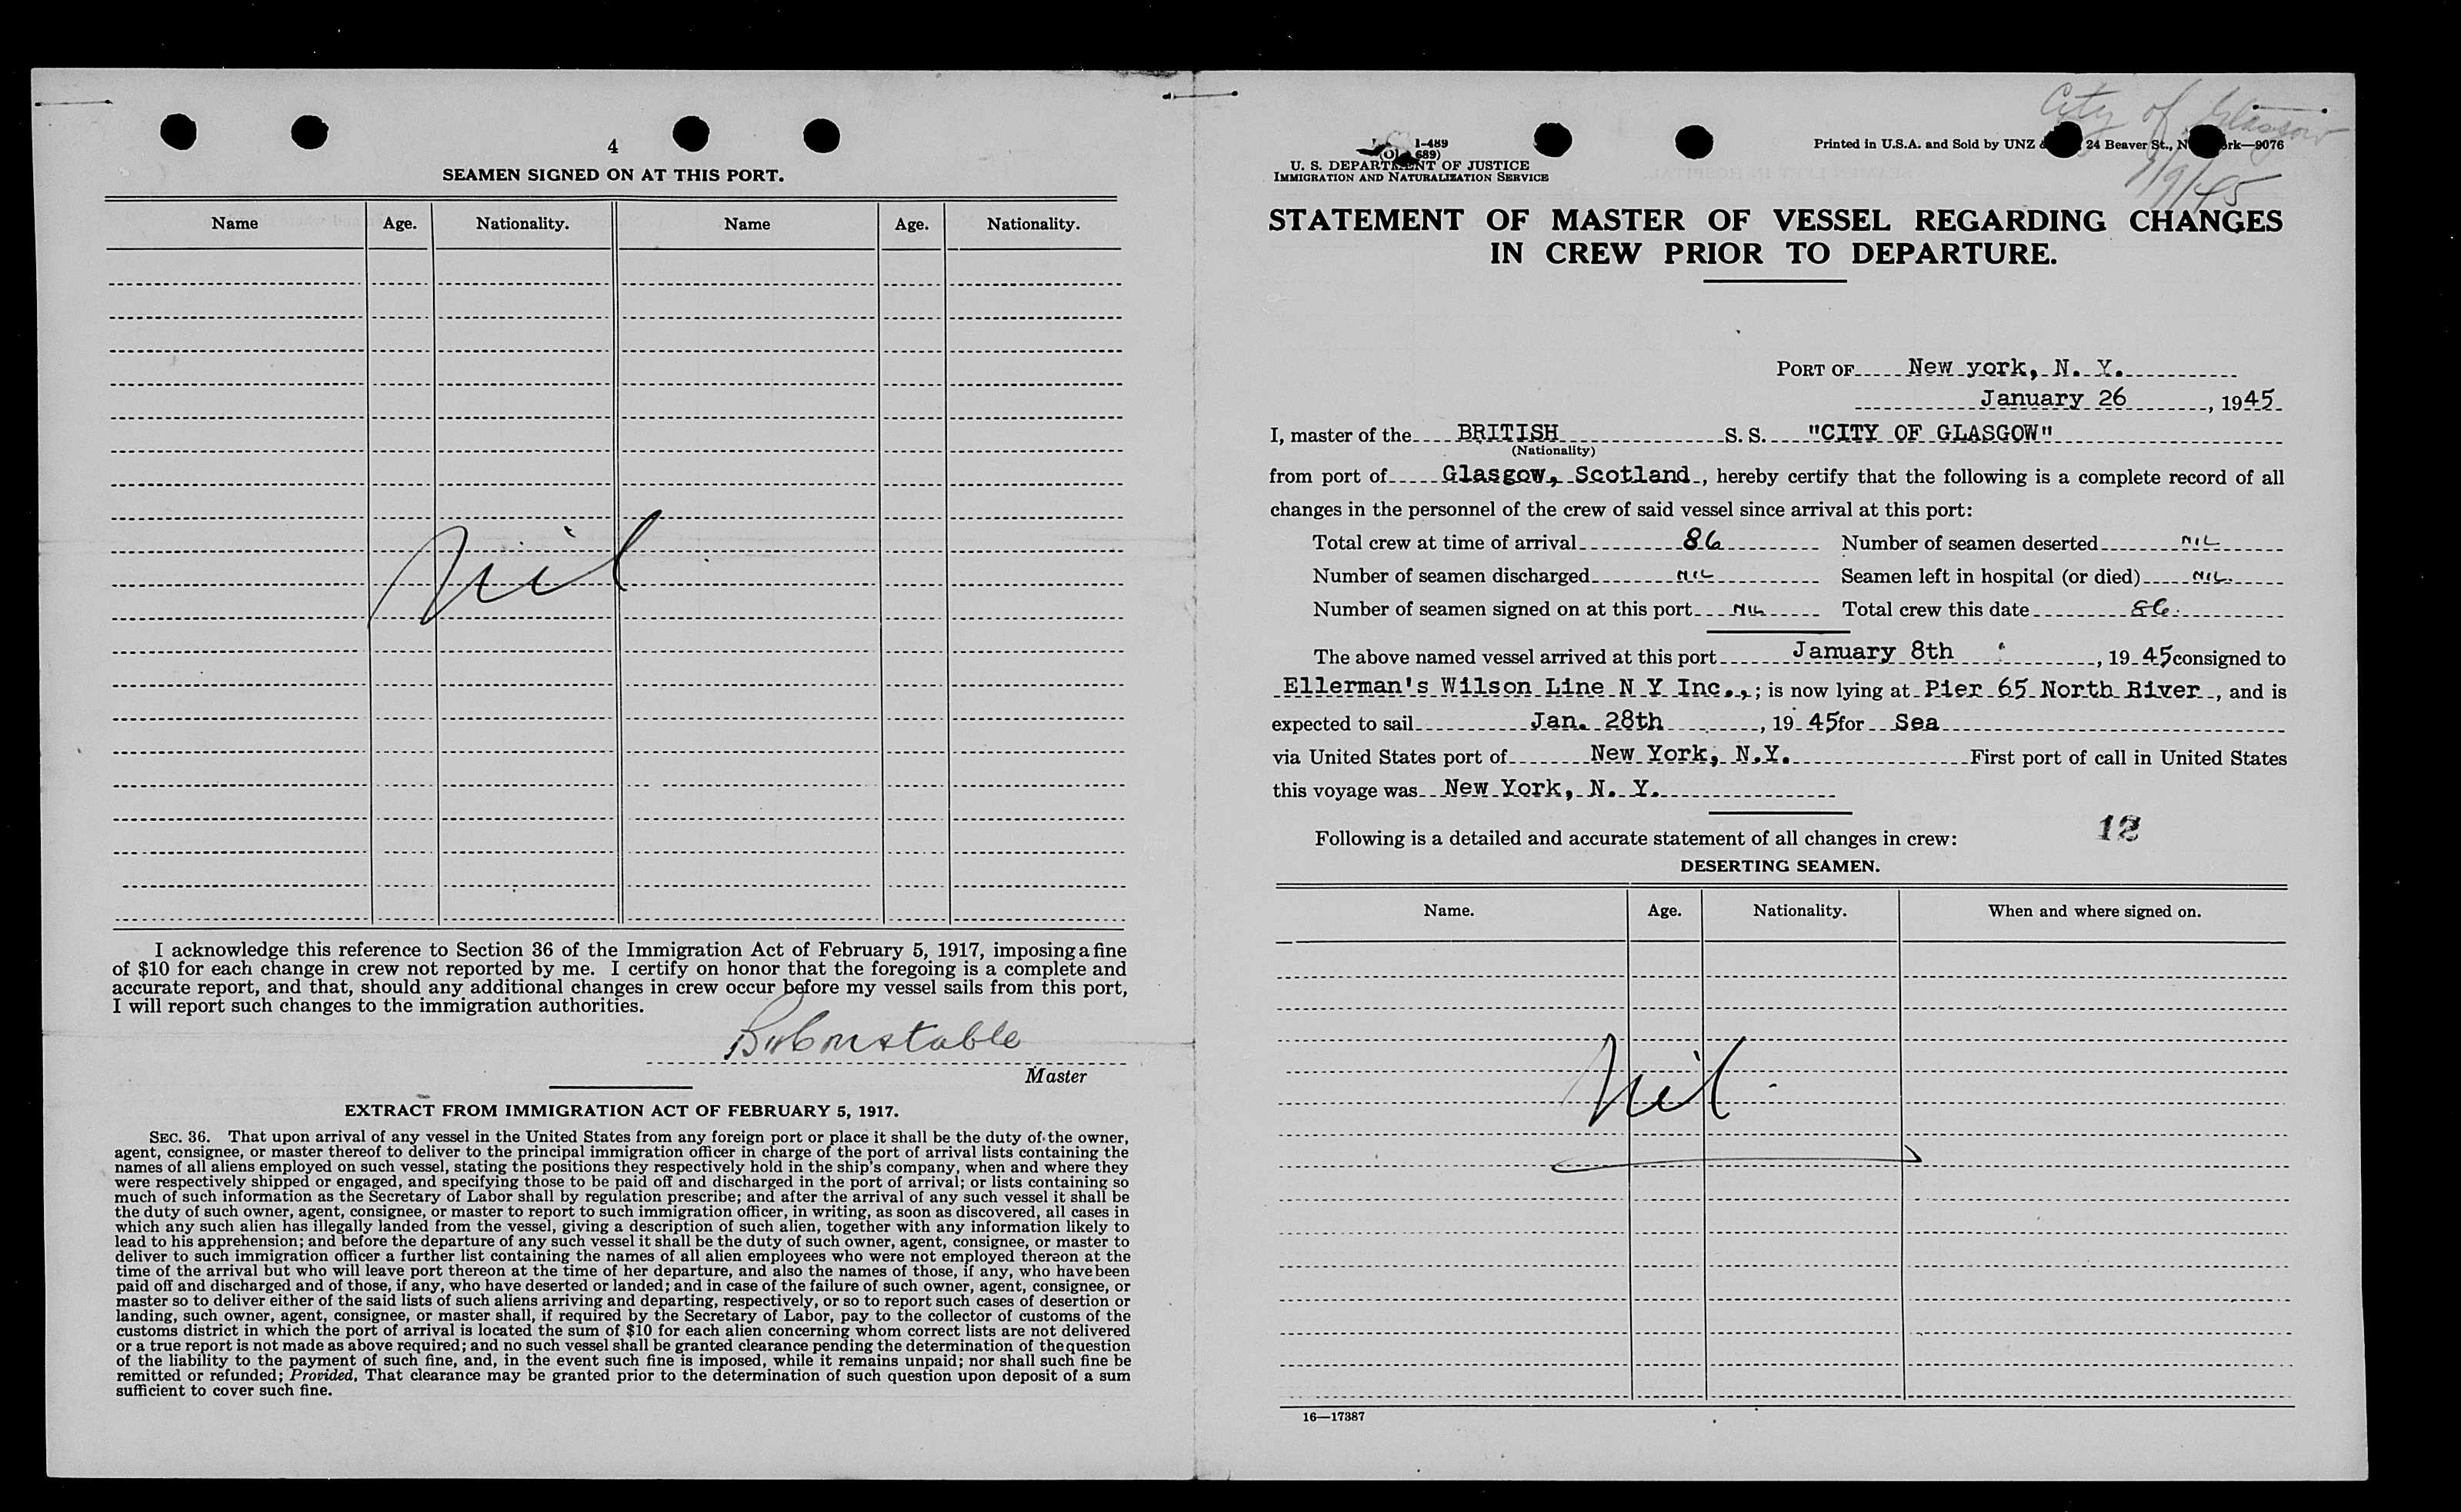 4
SEAMEN SIGNED ON AT THIS PORT.
Name Age. Nationality. Name Age. Nationality.
Nil
I acknowledge this reference to Section 36 of the Immigration Act of February 5, 1917, imposing a fine
of $10 for each change in crew not reported by me. I certify on honor that the foregoing is a complete and
accurate report, and that, should any additional changes in crew occur before my vessel sails from this port,
I will report such changes to the immigration authorities.
Constable
Master
EXTRACT FROM IMMIGRATION ACT OF FEBRUARY 5, 1917.
SEC. 36. That upon arrival of any vessel in the United States from any foreign port or place it shall be the duty of the owner,
agent, consignee, or master thereof to deliver to the principal immigration officer in charge of the port of arrival lists containing the
names of all aliens employed on such vessel, stating the positions they respectively hold in the ship's company, when and where they
were respectively shipped or engaged, and specifying those to be paid off and discharged in the port of arrival; or lists containing so
much of such information as the Secretary of Labor shall by regulation prescribe; and after the arrival of any such vessel it shall be
the duty of such owner, agent, consignee, or master to report to such immigration officer, in writing, as soon as discovered, all cases in
which any such alien has illegally landed from the vessel, giving a description of such alien, together with any information likely to
lead to his apprehension; and before the departure of any such vessel it shall be the duty of such owner, agent, consignee, or master to
deliver to such immigration officer a further list containing the names of all alien employees who were not employed thereon at the
time of the arrival but who will leave port thereon at the time of her departure, and also the names of those, if any, who have been
paid off and discharged and of those, if any, who have deserted or landed; and in case of the failure of such owner, agent, consignee, or
master so to deliver either of the said lists of such aliens arriving and departing, respectively, or so to report such cases of desertion or
landing, such owner, agent, consignee, or master shall, if required by the Secretary of Labor, pay to the collector of customs of the
customs district in which the port of arrival is located the sum of $10 for each alien concerning whom correct lists are not delivered
or a true report is not made as above required; and no such vessel shall be granted clearance pending the determination of the question
of the liability to the payment of such fine, and, in the event such fine is imposed, while it remains unpaid; nor shall such fine be
remitted or refunded; Provided, That clearance may be granted prior to the determination of such question upon deposit of a sum
sufficient to cover such fine.
City of Glasgow
1/9/45
I-489
689)
U. S. DEPARTMENT OF JUSTICE
IMMIGRATION AND NATURALIZATION SERVICE
Printed in U.S.A. and Sold by UNZ 24 Beaver St., N rk—9076
STATEMENT OF MASTER OF VESSEL REGARDING CHANGES
IN CREW PRIOR TO DEPARTURE.
PORT OF New york, N. Y.
January 26, 1945
I, master of the BRITISH S. S. "CITY OF GLASGOW"
(Nationality)
from port of Glasgow, Scotland, hereby certify that the following is a complete record of all
changes in the personnel of the crew of said vessel since arrival at this port:
Total crew at time of arrival 86 Number of seamen deserted NIL
Number of seamen discharged NIL Seamen left in hospital (or died) NIL.
Number of seamen signed on at this port NIL Total crew this date 86.
The above named vessel arrived at this port January 8th, 1945 consigned to
Ellerman's Wilson Line N Y Inc.,; is now lying at Pier 65 North River, and is
expected to sail Jan. 28th, 1945 for Sea
via United States port of New York, N.Y. First port of call in United States
this voyage was New York, N. Y.
Following is a detailed and accurate statement of all changes in crew: 12
DESERTING SEAMEN.
Name. Age. Nationality. When and where signed on.
Nil.
16—17387